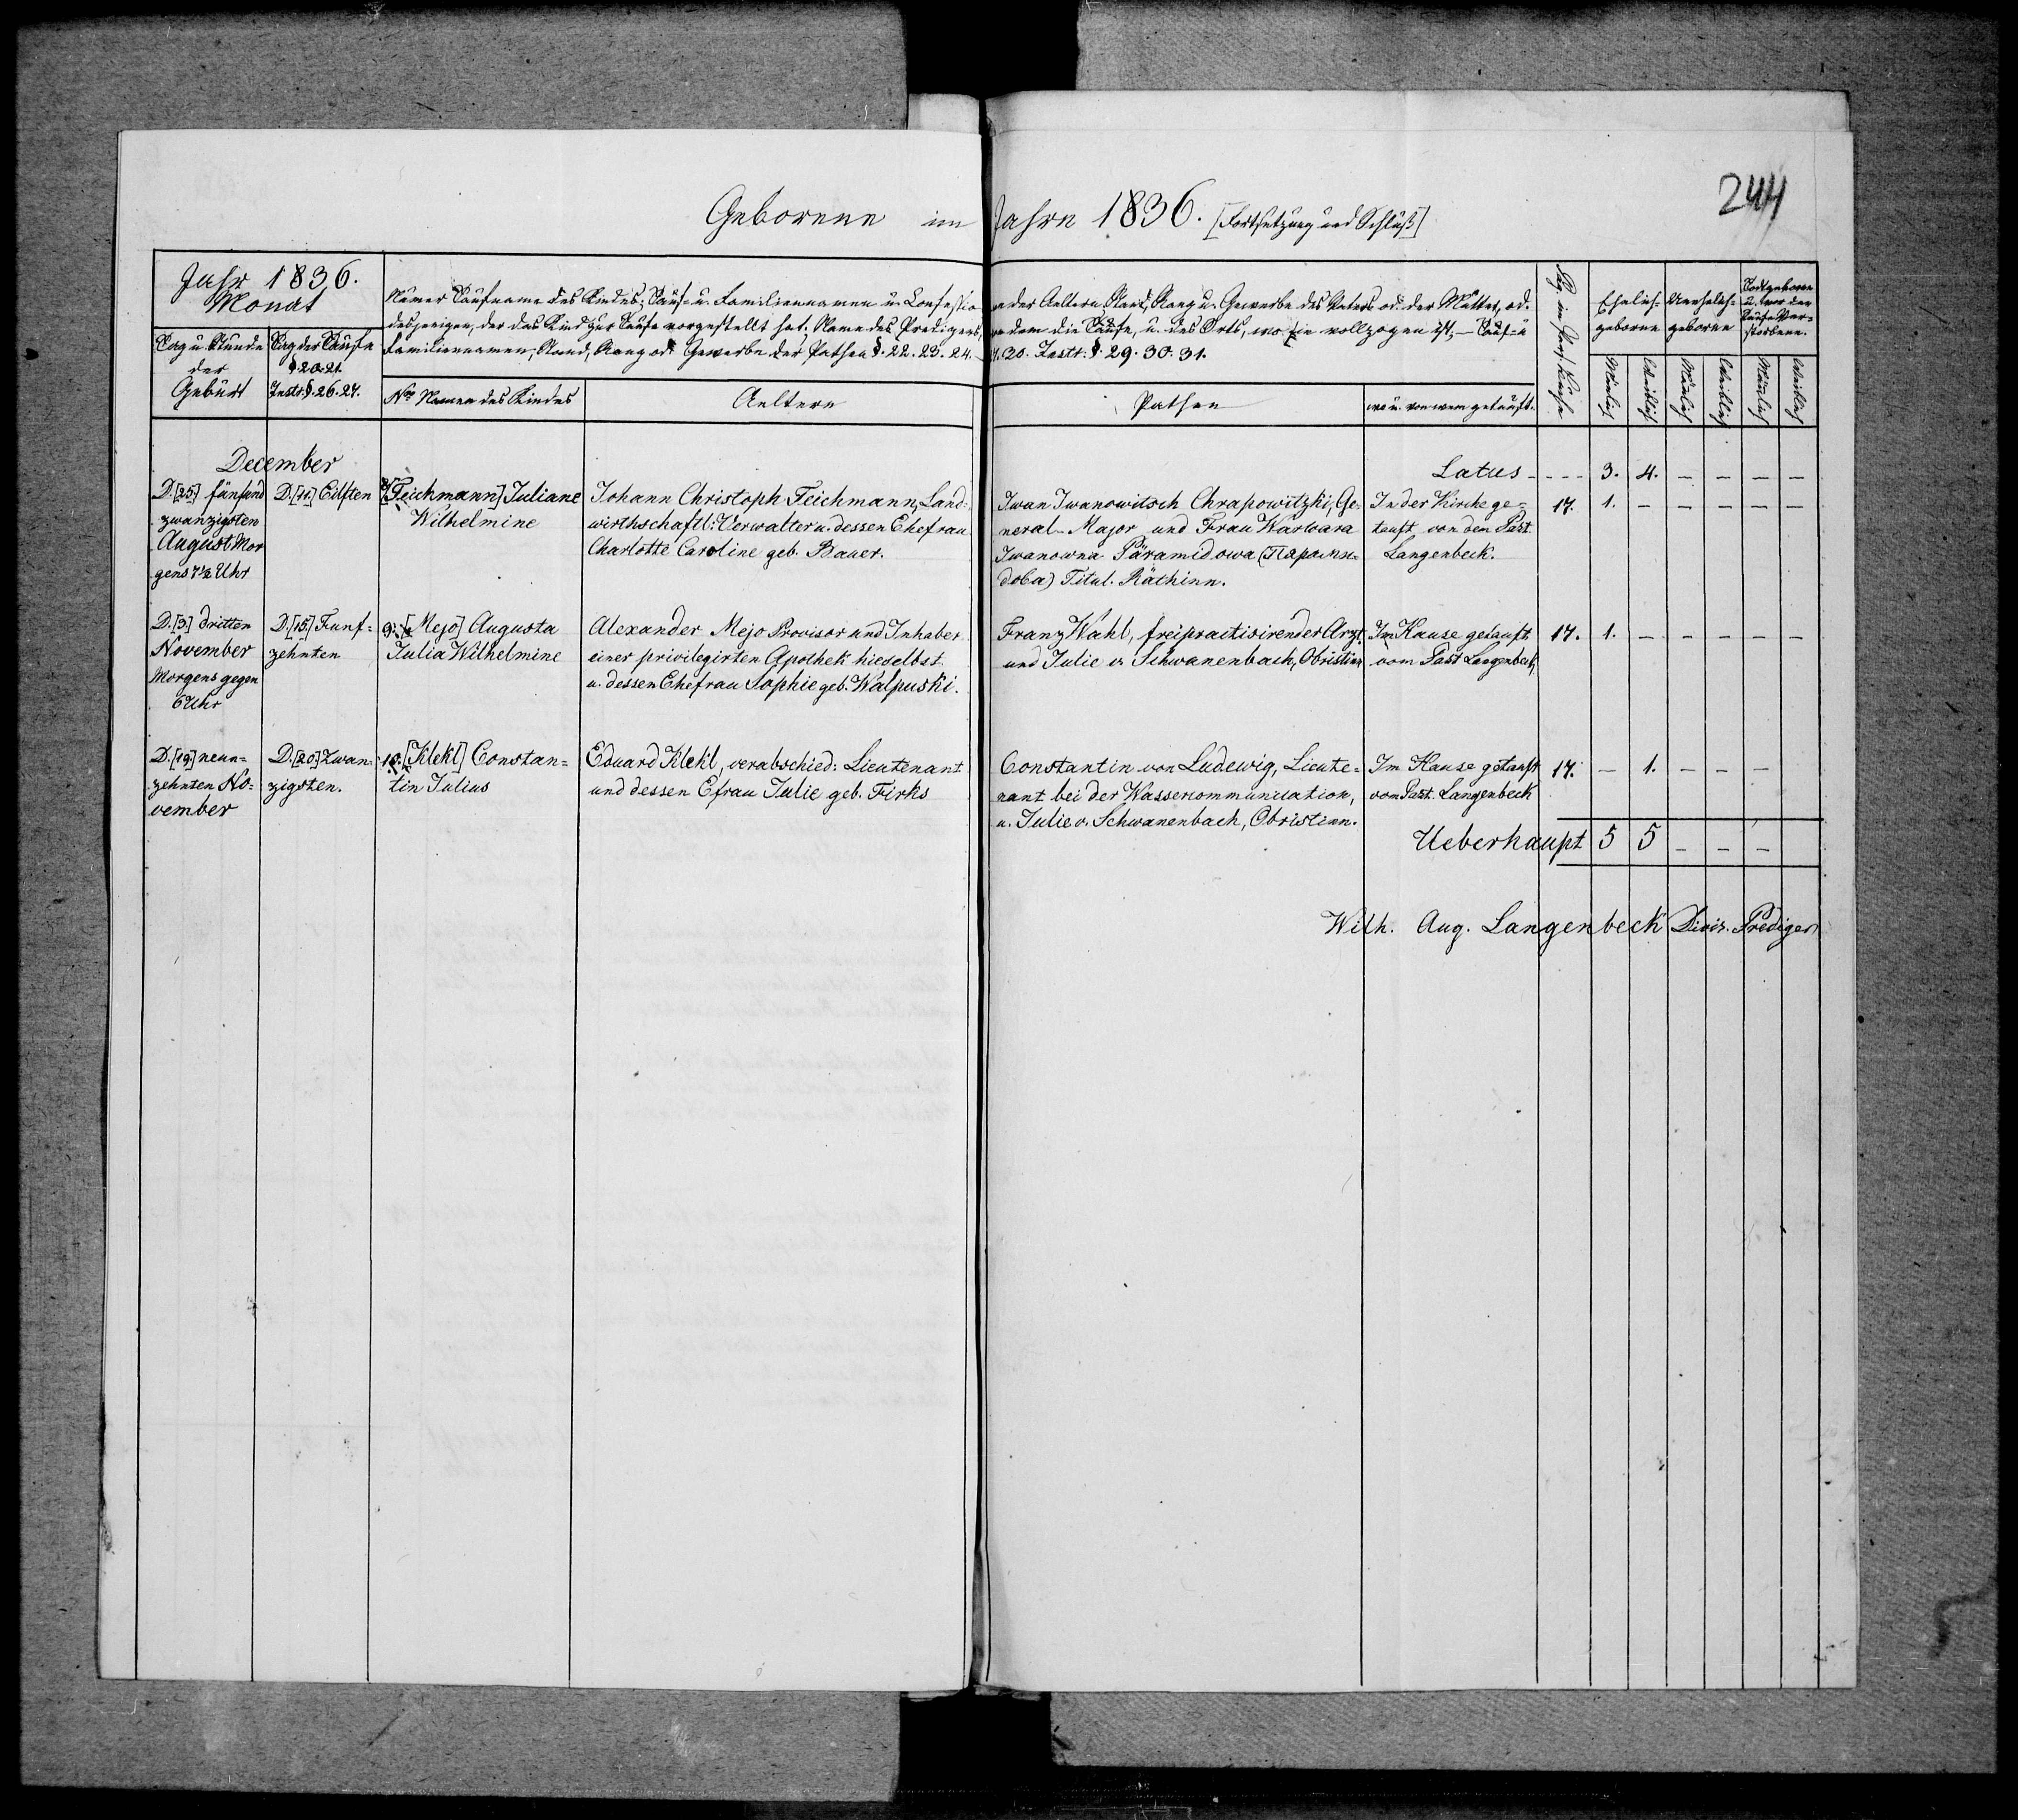 244
Geborene im Jahre 1836. [Fortsetzung und Schluß]
Jahr 1836.
Monat
Tag u. Stunde der Geburt
Tag der Taufe
§ 20.21.
Instr. § 26.27.
Numer Taufname des Kindes, Tauf- u. Familiennamen u. Confession der Aeltern, Stand, Rang u. Gewerbe des Vaters od. der Mutter, od.
desjenigen, der das Kind zur Taufe vorgestellt hat. Name des Predigers, von dem die Taufe, u. des Orts, wo sie vollzogen ist, – Tauf- u
Familiennamen, Stand, Rang od. Gewerbe der Pathen §. 22. 23. 24. 30. Instr. §. 29. 30. 31.
No Namen des Kindes
Aeltern
Pathen
wo u. von wem getauft.
Ehelich-geborne
Unehelich-geborne
Todtgeborene u. vor der Taufe Verstorbene.
Männlich
Weiblich
Männlich
Weiblich
Männlich
Weiblich
December
Latus - - - 3. 4. – – – –
D. [25.] fünfund
zwanzigsten
August Mor
gens 7½ Uhr
D. [11.] Eilften
[Teichmann] Juliane
Wilhelmine
Johann Christoph Teichmann, Land-
wirthschaftl: Verwalter u. dessen Ehefrau
Charlotte Caroline geb. Bauer.
Iwan Iwanowitsch Chrapowitzki, Ge-
neral-Major und Frau Warwara
Iwanowna Päramidowa
Titul. Räthinn.
In der Kirche ge-
tauft von dem Past
Langenbeck.
17. 1. – – – – –
D. [3.] dritten
November
Morgens gegen
6 Uhr
D. [15.] Funf-
zehnten
9. [Mejo] Augusta
Julia Wilhelmine
Alexander Mejo Provisor und Inhaber
einer privilegirten Apothek hieselbst
u. dessen Ehefrau Sophie geb. Walpuski.
Franz Wahl, freipractisirender Arzt
und Julie v. Schwanenbach, Obristinn
Im Hause getauft
vom Past Langenbeck,
17. 1. – – – – –
D. [19.] neun-
zehnten No-
vember
D. [20.] Zwan-
zigsten.
10. [Klekl] Constan-
tin Julius
Eduard Klekl, verabschied: Lieutenant
und dessen Efrau Julie geb. Firks
Constantin von Ludewig, Lieute-
nant bei der Wassercommunication,
u. Julie v. Schwanenbach, Obristinn.
Im Hause getauft
vom Past. Langenbeck
17. – 1. – – –
Ueberhaupt 5 5 – – –
Wilh. Aug. Langenbeck Divis. Prediger